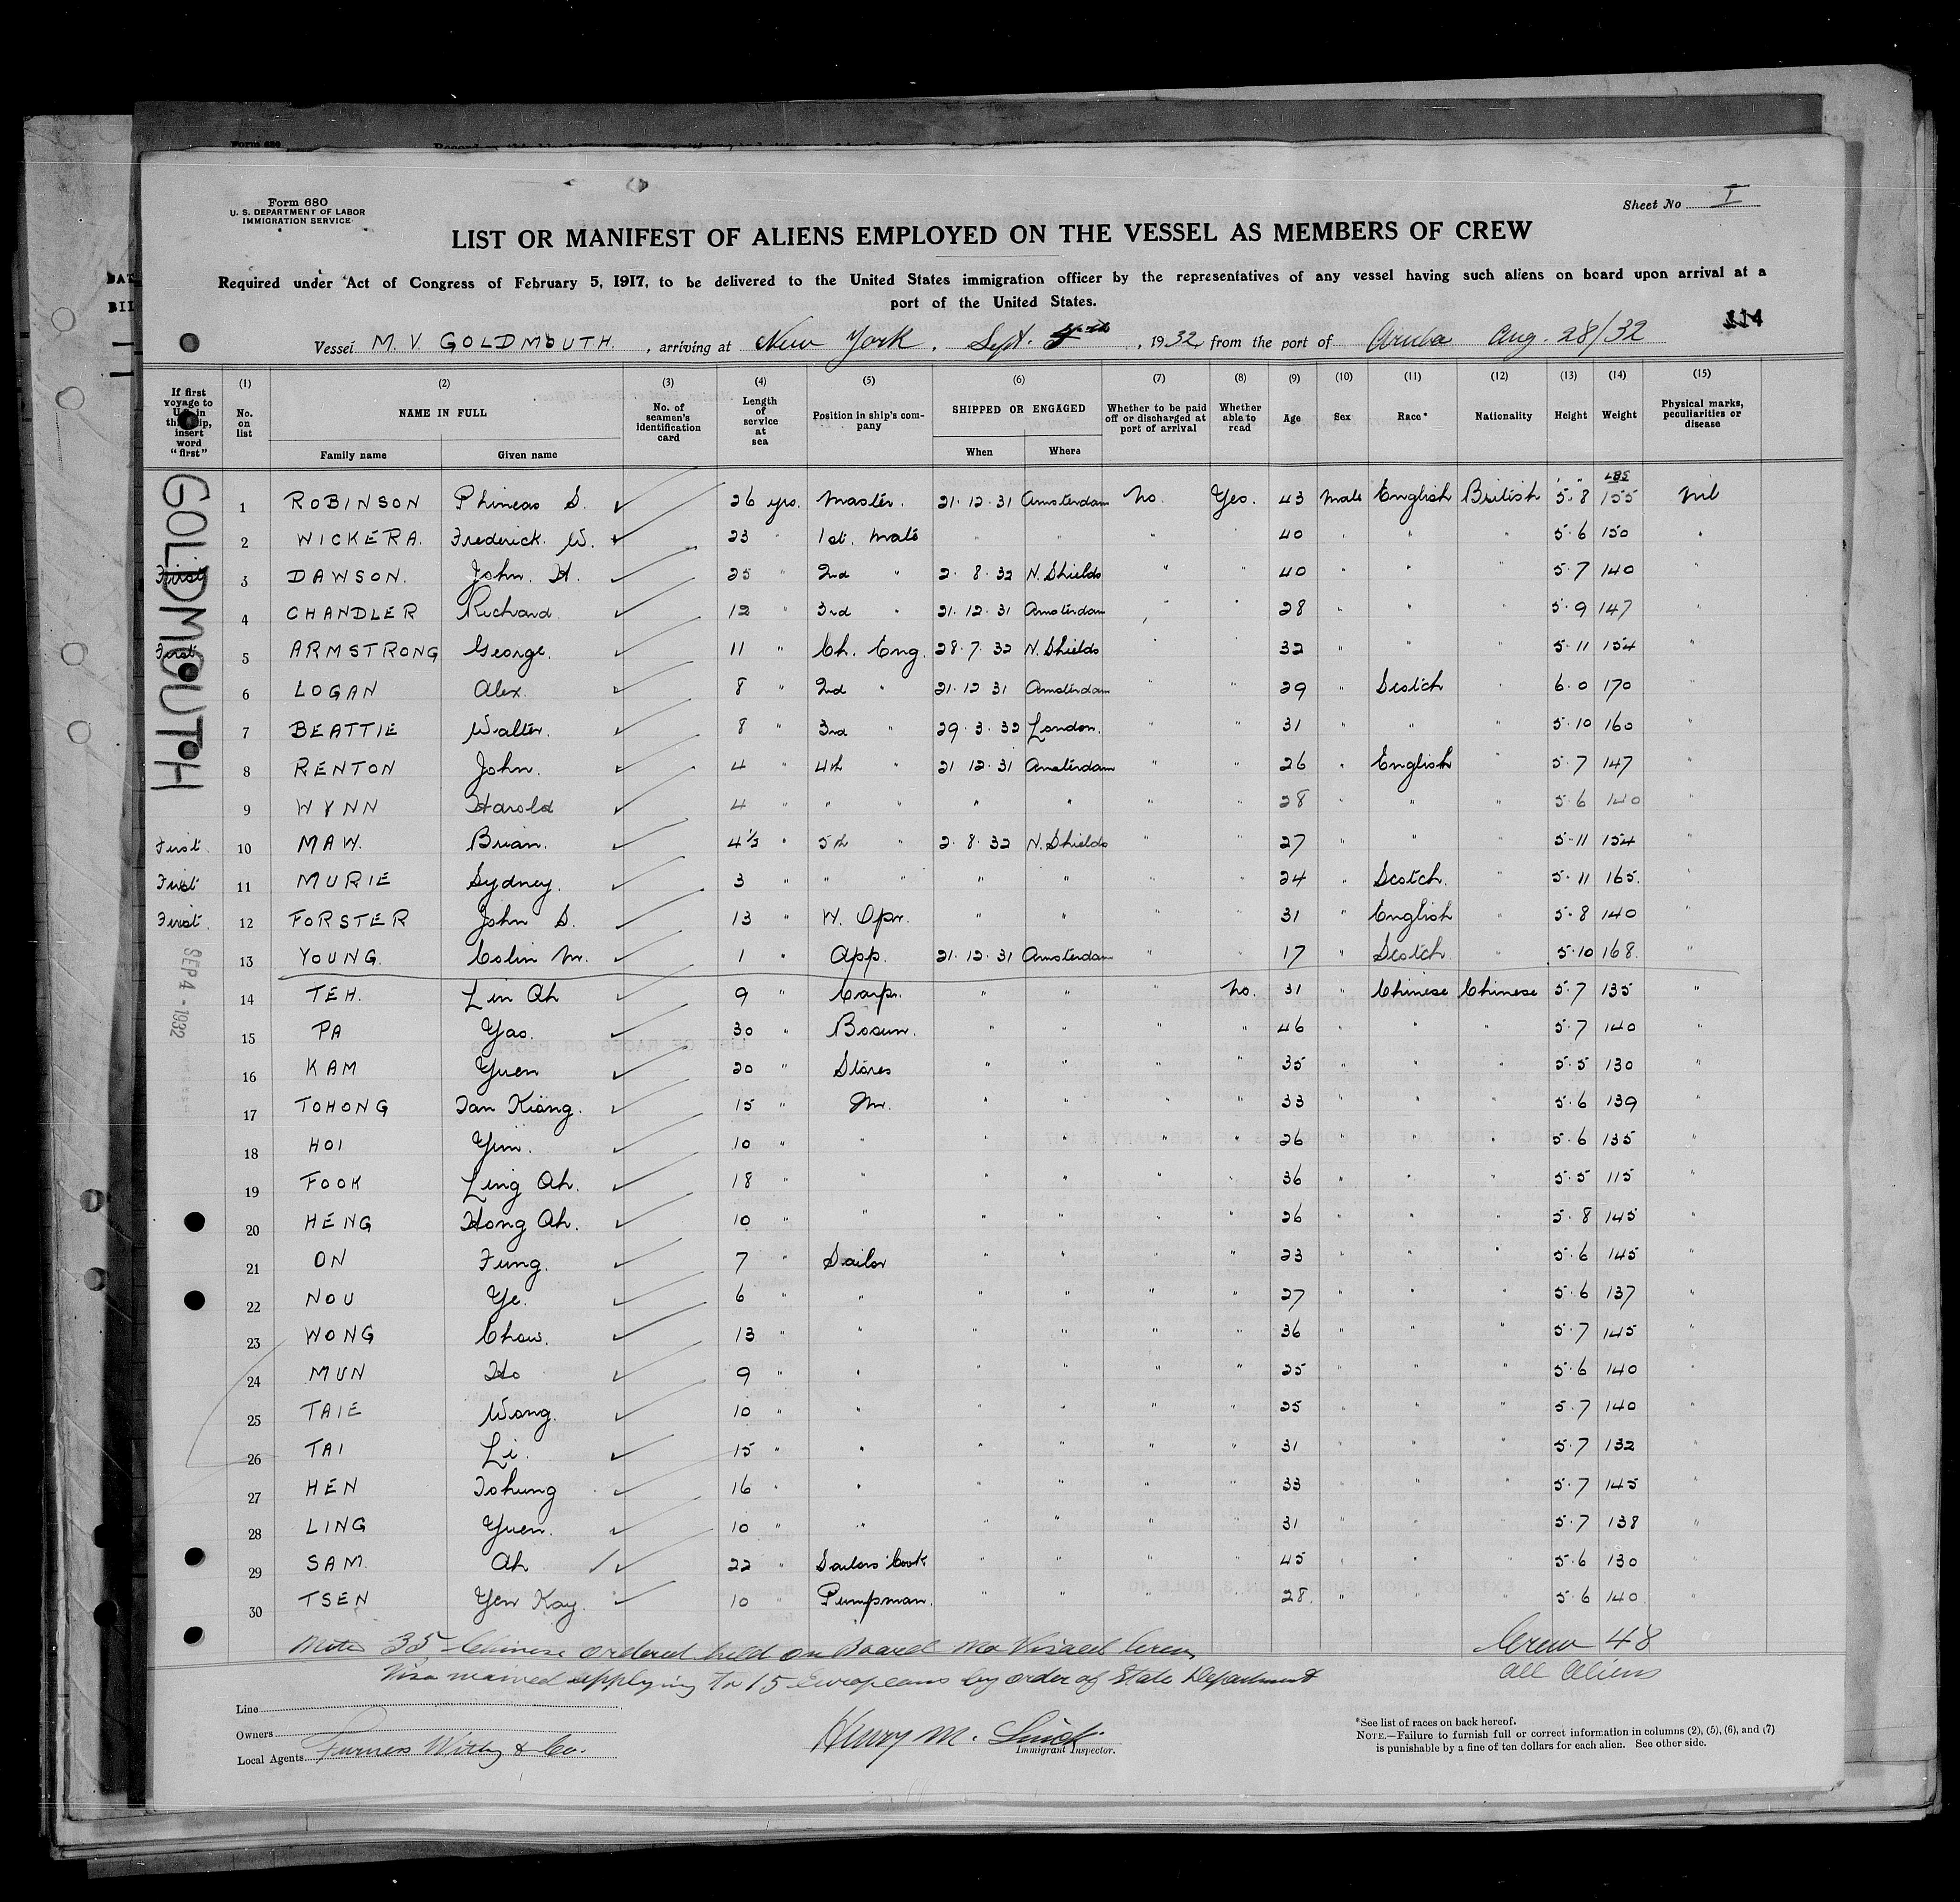 Form 680
U. S. DEPARTMENT OF LABOR
IMMIGRATION SERVICE
Sheet No I
LIST OR MANIFEST OF ALIENS EMPLOYED ON THE VESSEL AS MEMBERS OF CREW
Required under Act of Congress of February 5, 1917, to be delivered to the United States immigration officer by the representatives of any vessel having such aliens on board upon arrival at a
port of the United States.
114
Vessel M. V. GOLDMOUTH. , arriving at New York. Sept. , 1932, from the port of Aruba Aug. 28/32
If first voyage to U.S. in this ship, insert word "first"
(1) No. on list
(2) NAME IN FULL
Family name Given name
(3) No. of seamen's identification card
(4) Length of service at sea
(5) Position in ship's company
(6) SHIPPED OR ENGAGED
When Where
(7) Whether to be paid off or discharged at port of arrival
(8) Whether able to read
(9) Age
(10) Sex
(11) Race*
(12) Nationality
(13) Height
(14) Weight
(15) Physical marks, peculiarities or disease
GOLDMOUTH
SEP 4 - 1932
1 ROBINSON Phineas S. ✓ 26 yrs. Master. 21·12·31 Amsterdam No. Yes. 43 Male English British 5·8 155 Nil
2 WICKERA. Frederick. W. ✓ 23 " 1st. Mate " " " 40 " " " 5·6 150 "
First 3 DAWSON. John. H. ✓ 25 " 2nd " 2·8·32 N. Shields " " 40 " " " 5·7 140 "
4 CHANDLER Richard ✓ 12 " 3rd " 21·12·31 Amsterdam " " 28 " " " 5·9 147 "
First 5 ARMSTRONG George. ✓ 11 " Ch. Eng. 28·7·32 N. Shields " 32 " " " 5·11 154 "
6 LOGAN Alex ✓ 8 " 2nd " 21·12 31 Amsterdam " " 29 " Scotch " 6·0 170 "
7 BEATTIE Walter. ✓ 8 " 3rd " 29·3·32 London. " " 31 " " " 5·10 160 "
8 RENTON John. ✓ 4 " 4th " 21 12·31 Amsterdam " " 26 " English " 5·7 147 "
9 WYNN Harold ✓ 4 " " " " " " " 28 " " " 5·6 140 "
First 10 MAW. Brian. ✓ 4½ " 5th " 2·8·32 N. Shields " " 27 " " " 5·11 154 "
First 11 MURIE Sydney. ✓ 3 " " " " " " " 24 " Scotch. " 5·11 165. "
First 12 FORSTER John S. ✓ 13 " W. Opr. " " " " 31 " English " 5·8 140 "
13 YOUNG. Colin M. ✓ 1 " App. 21·12·31 Amsterdam " " 17 " Scotch " 5·10 168. "
14 TEH. Lin Ah ✓ 9 " Carpr. " " " No. 31 " Chinese Chinese 5·7 135 "
15 PA Yao. ✓ 30 " Bosun. " " " " 46 " " " 5·7 140 "
16 KAM Yuen ✓ 20 " Stores " " " " 35 " " " 5·5 130 "
17 TOHONG Tan Kiang. ✓ 15 " " " " " 33 " " " 5·6 139 "
18 HOI Yim. ✓ 10 " " " " " " 26 " " " 5·6 135 "
19 FOOK Ling Ah. ✓ 18 " " " " " " 36 " " " 5·5 115 "
20 HENG Hong Ah. ✓ 10 " " " " " " 26 " " " 5·8 145 "
21 ON Fung. ✓ 7 " Sailor " " " " 23 " " " 5·6 145 "
22 NOU Ye. ✓ 6 " " " " " " 27 " " " 5·6 137 "
23 WONG Chow. ✓ 13 " " " " " " 36 " " " 5·7 145 "
24 MUN Ho ✓ 9 " " " " " " 25 " " " 5·6 140 "
25 TAIE Wong. ✓ 10 " " " " " " 25 " " " 5·7 140 "
26 TAI Li. ✓ 15 " " " " " " 31 " " " 5·7 132 "
27 HEN Tohung ✓ 16 " " " " " " 33 " " " 5·7 145 "
28 LING Yuen. ✓ 10 " " " " " " 31 " " " 5·7 138 "
29 SAM. Ah ✓ 22 " Sailors Cook " " " " 45 " " " 5·6 130 "
30 TSEN Yen Kay. ✓ 10 " Pumpsman. " " " " 28. " " " 5·6 140 "
Note 35 Chinese ordered held on Board no Visaed Crew
Crew 48
Visa waived applying to 15 Europeans by order of State Department
all Aliens
Line
Owners
Local Agents Furness Withy & Co.
Henry M.
Immigrant Inspector.
*See list of races on back hereof.
NOTE.—Failure to furnish full or correct information in columns (2), (5), (6), and (7)
is punishable by a fine of ten dollars for each alien. See other side.